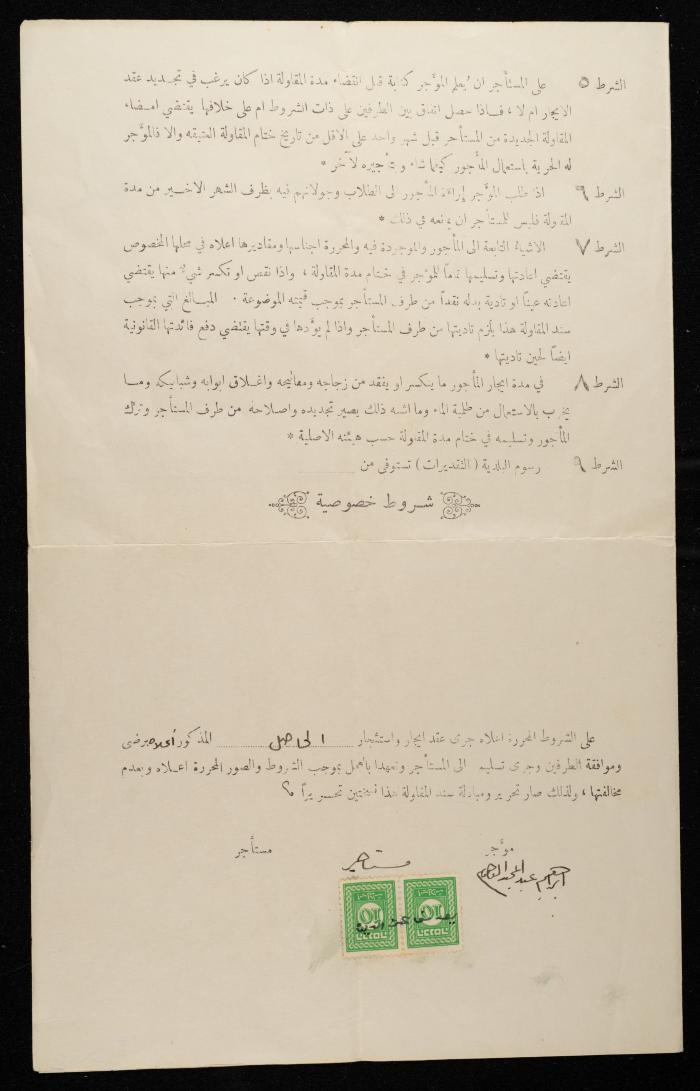 الشرط ٥ على المستأجر ان يُعلم المؤجر كتابة قبل انقضاء مدة المقاولة اذا كان يرغب في تجديد عقد
الايجار ام لا ، فاذا حصل اتفاق بين الطرفين على ذات الشروط ام على خلافها يقتضي امضاء
المقاولة الجديدة من المستأجر قبل شهر واحد على الاقل من تاريخ ختام المقاولة العتيقه والا فالمؤجر
له الحرية باستعمال المأجور كيفما شاء وبتأجيره لآخر *
الشرط ٦ اذا طلب المؤجر إراءة المأجور الى الطلاب وجولانهم فيه بظرف الشهر الاخير من مدة
المقاولة فليس للمستأجر ان يمانعه في ذلك *
الشرط ٧ الاشياء التابعة الى المأجور والموجودة فيه والمحررة اجناسها ومقاديرها اعلاه في محلها المخصوص
يقتضي اعادتها وتسليمها تماماً للمؤجر في ختام مدة المقاولة ، واذا نقص او تكسر شيء منها يقتضي
اعادته عيناً او تادية بدله نقداً من طرف المستأجر بموجب قيمته الموضوعة . المبالغ التي بموجب
سند المقاولة هذا يلزم تاديتها من طرف المستأجر واذا لم يؤدها في وقتها يقتضي دفع فائدتها القانونية
ايضاً لحين تاديتها *
الشرط ٨ في مدة ايجار المأجور ما ينكسر او يفقد من زجاجه ومفاتيحه واغلاق ابوابه وشبابيكه وما
يخرب بالاستعمال من طلمبة الماء وما اشبه ذلك يصير تجديده واصلاحه من طرف المستأجر وترك
المأجور وتسليمه في ختام مدة المقاولة حسب هيئته الاصلية *
الشرط ٩ رسوم البلدية ( التقديرات ) تستوفى من
شروط خصوصية
على الشروط المحررة اعلاه جرى عقد ايجار واستئجار الحاصل المذكور أعلاه برضى
وموافقة الطرفين وجرى تسليم الى المستأجر وتعهدا بالعمل بموجب الشروط والصور المحررة اعلاه وبعدم
مخالفتها ، ولذلك صار تحرير ومبادلة سند المقاولة هذا نسختين تحريراً
مؤجر مستأجر
ابراهيم عبد